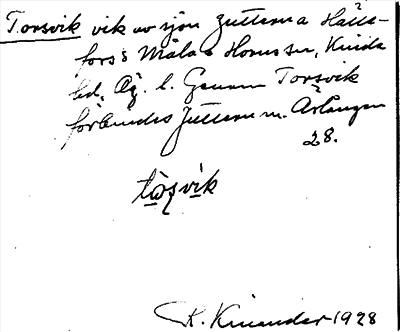 Torsvik vik av sjön Juttern a Hälle-
fors s Måla o Horns sn, Kinda
hd, Ög. l. Genom Torsvik
förbindes Juttern m. Åsunden
28.
tòrsvik
R. Kinander 1928